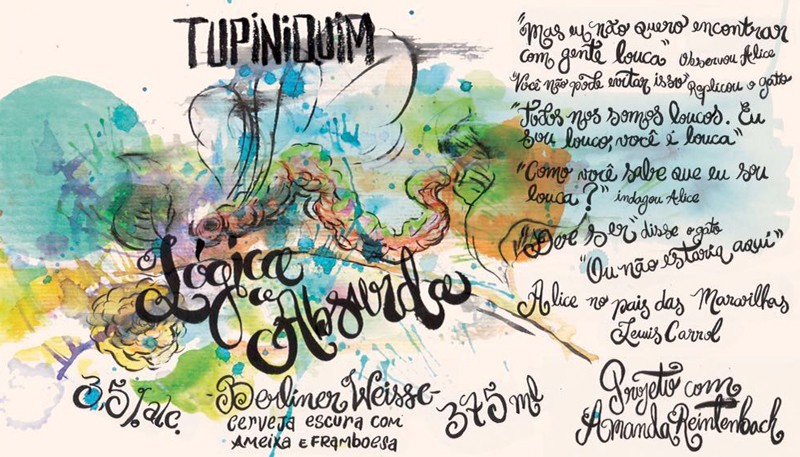 TUPiNiQUiM
Lógica
do
Absurdo
3,5% alc.
-Berliner Weisse-
cerveja escura com
AMEIXA E FRAMBOESA
375 ml
"Mas eu não quero encontrar
com gente louca" Observou Alice
"Você não pode evitar isso" Replicou o gato
"Todos nos somos loucos. Eu
sou louco, você é louca"
"Como você sabe que eu sou
louca?" indagou Alice
"Deve ser" disse o gato
"Ou não estaria aqui"
Alice no pais das Maravilhas
Lewis Carrol
Projeto com
Amanda Reintenbach